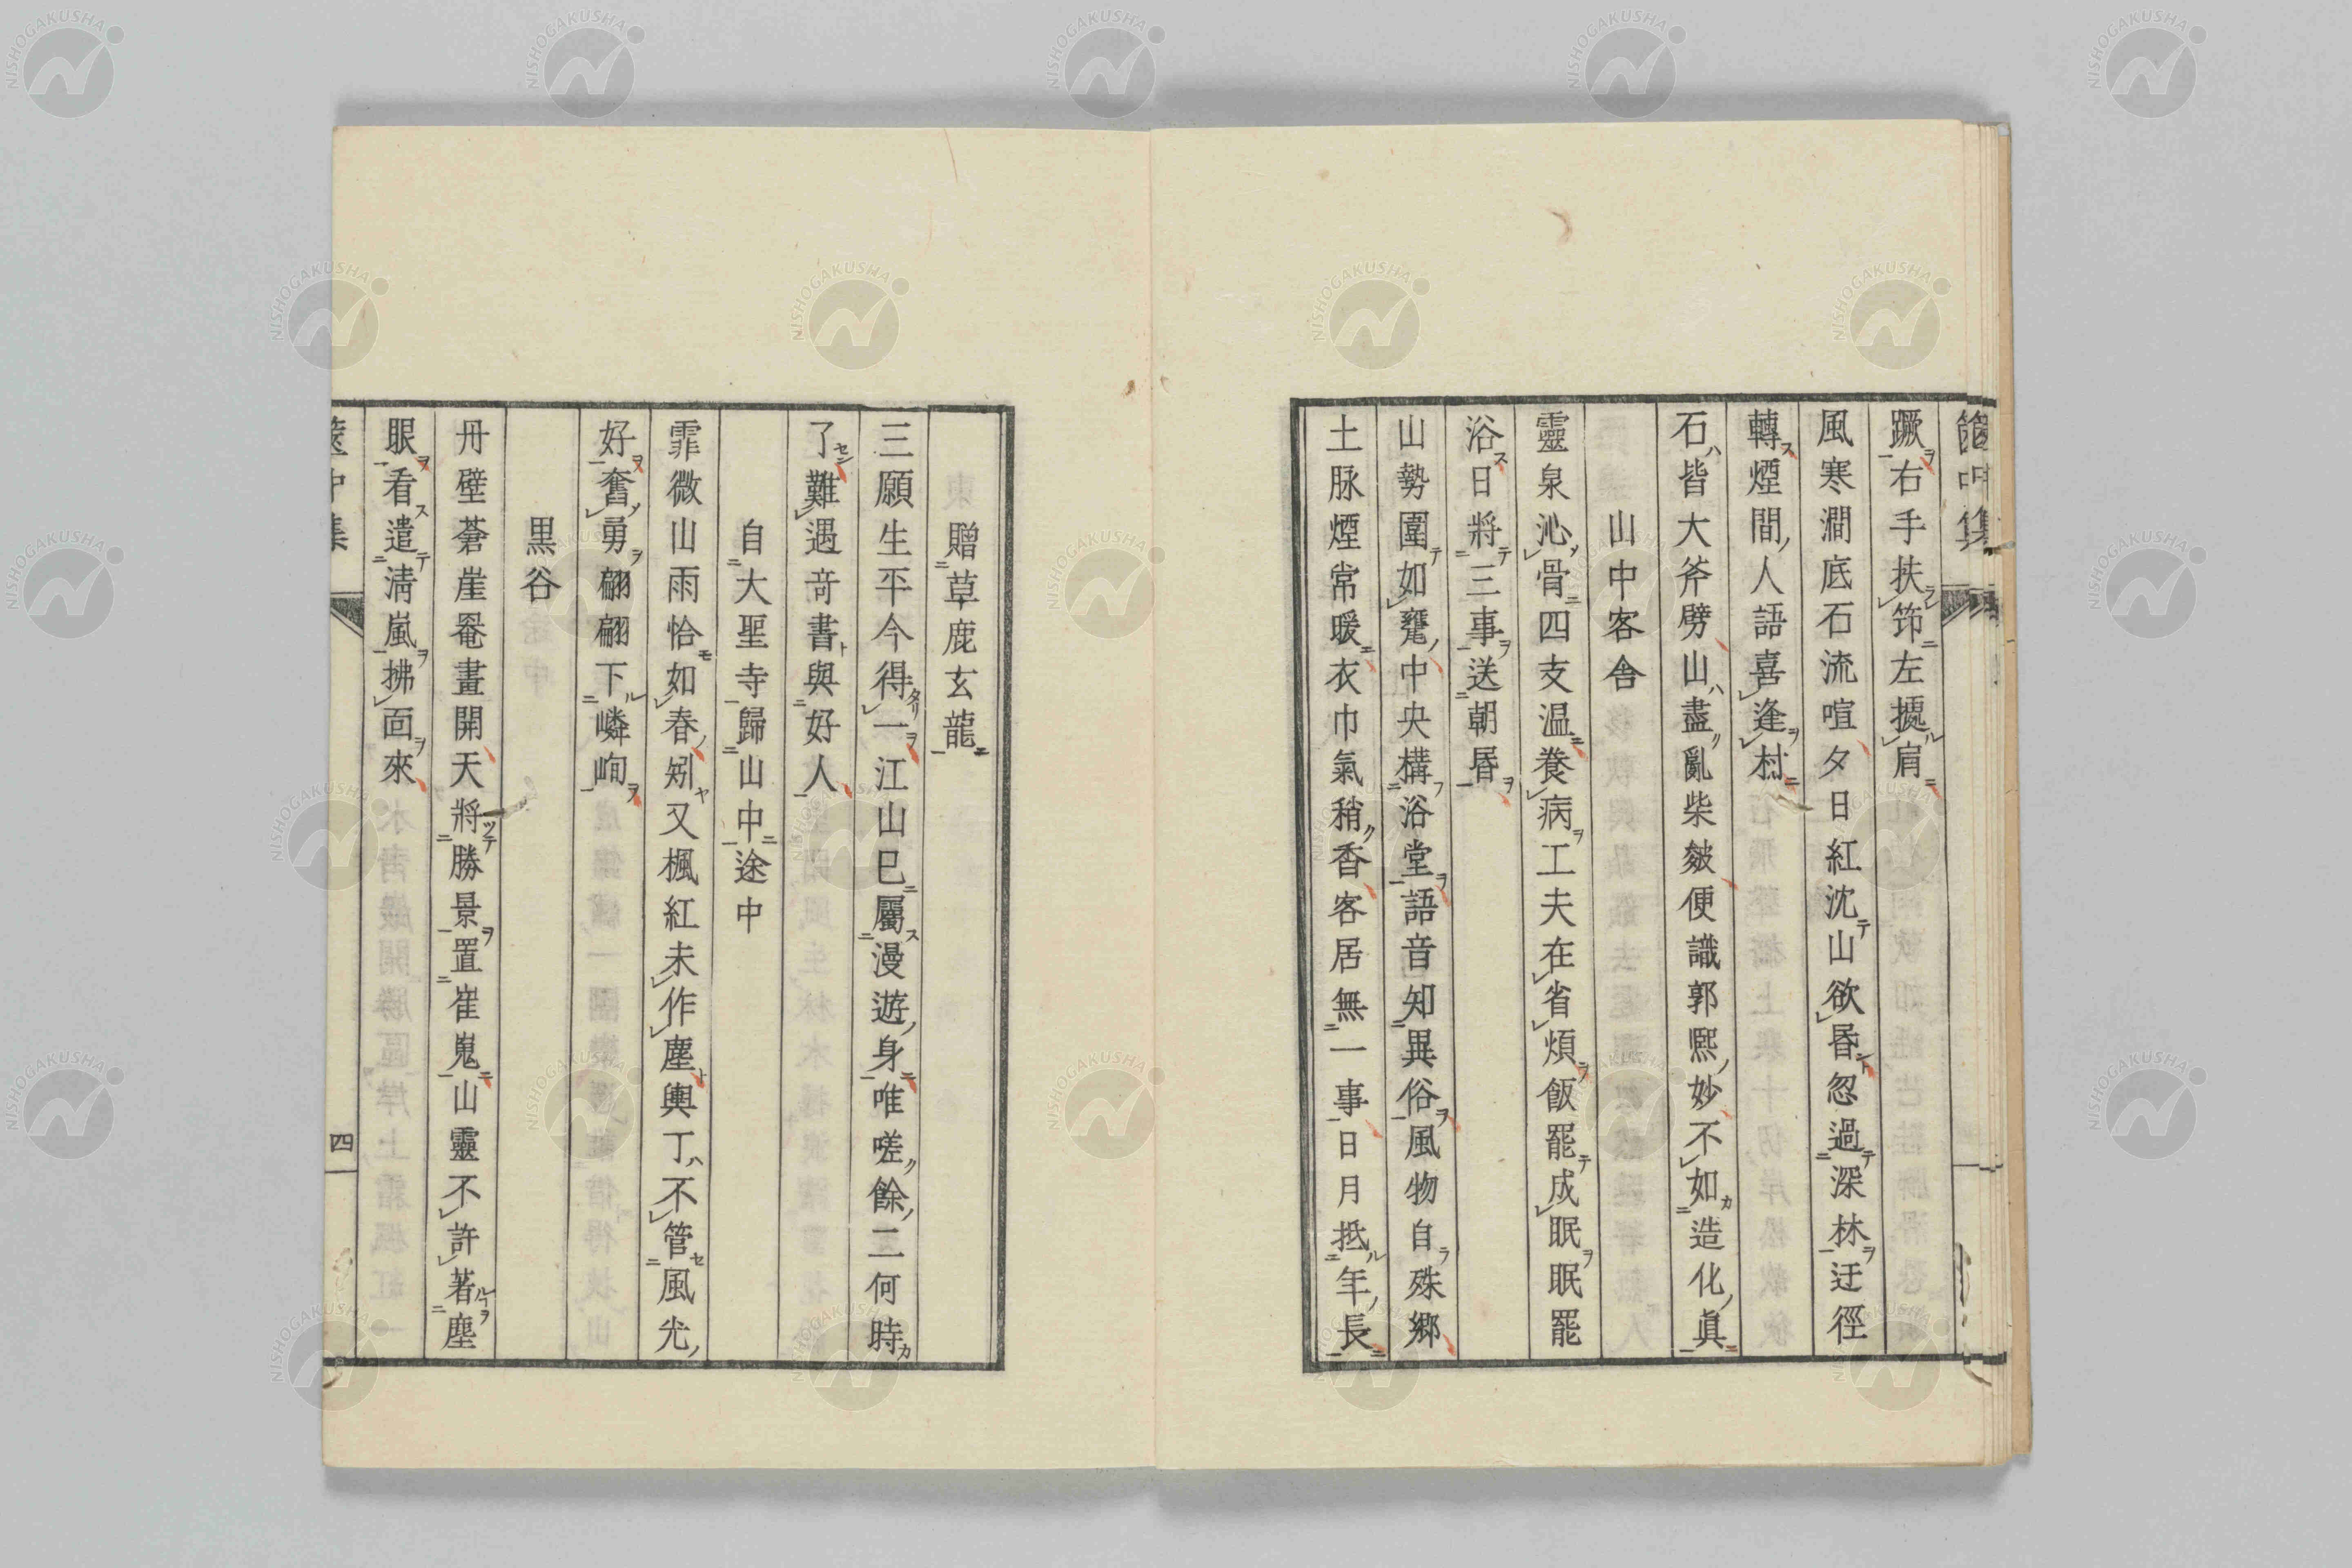 蹶右手扶筇左攓肩
風寒澗底石流喧夕日紅沈山欲昏忽過深林迂徑
轉煙間人語喜逢村
石皆大斧劈山盡亂柴皴便識郭熙妙不如造化眞
山中客舍
靈泉沁骨四支温養病工夫在省煩飯罷成眠眠罷
浴日將三事送朝昏
山勢圍如甕中央構浴堂語音知異俗風物自殊鄉
土脉煙常暖衣巾氣稍香客居無一事日月抵年長
贈草鹿玄龍
三願生平今得一江山已屬漫遊身唯嗟餘二何時
了難遇竒書與好人
自大聖寺歸山中途中
霏微山雨恰如春矧又楓紅未作塵輿丁不管風光
好奮勇翩翩下嶙峋
黒谷
丹壁蒼崖罨畫開天將勝景置崔嵬山靈不許著塵
眼看遣淸嵐拂面來
四
NISHOGAKUSHA